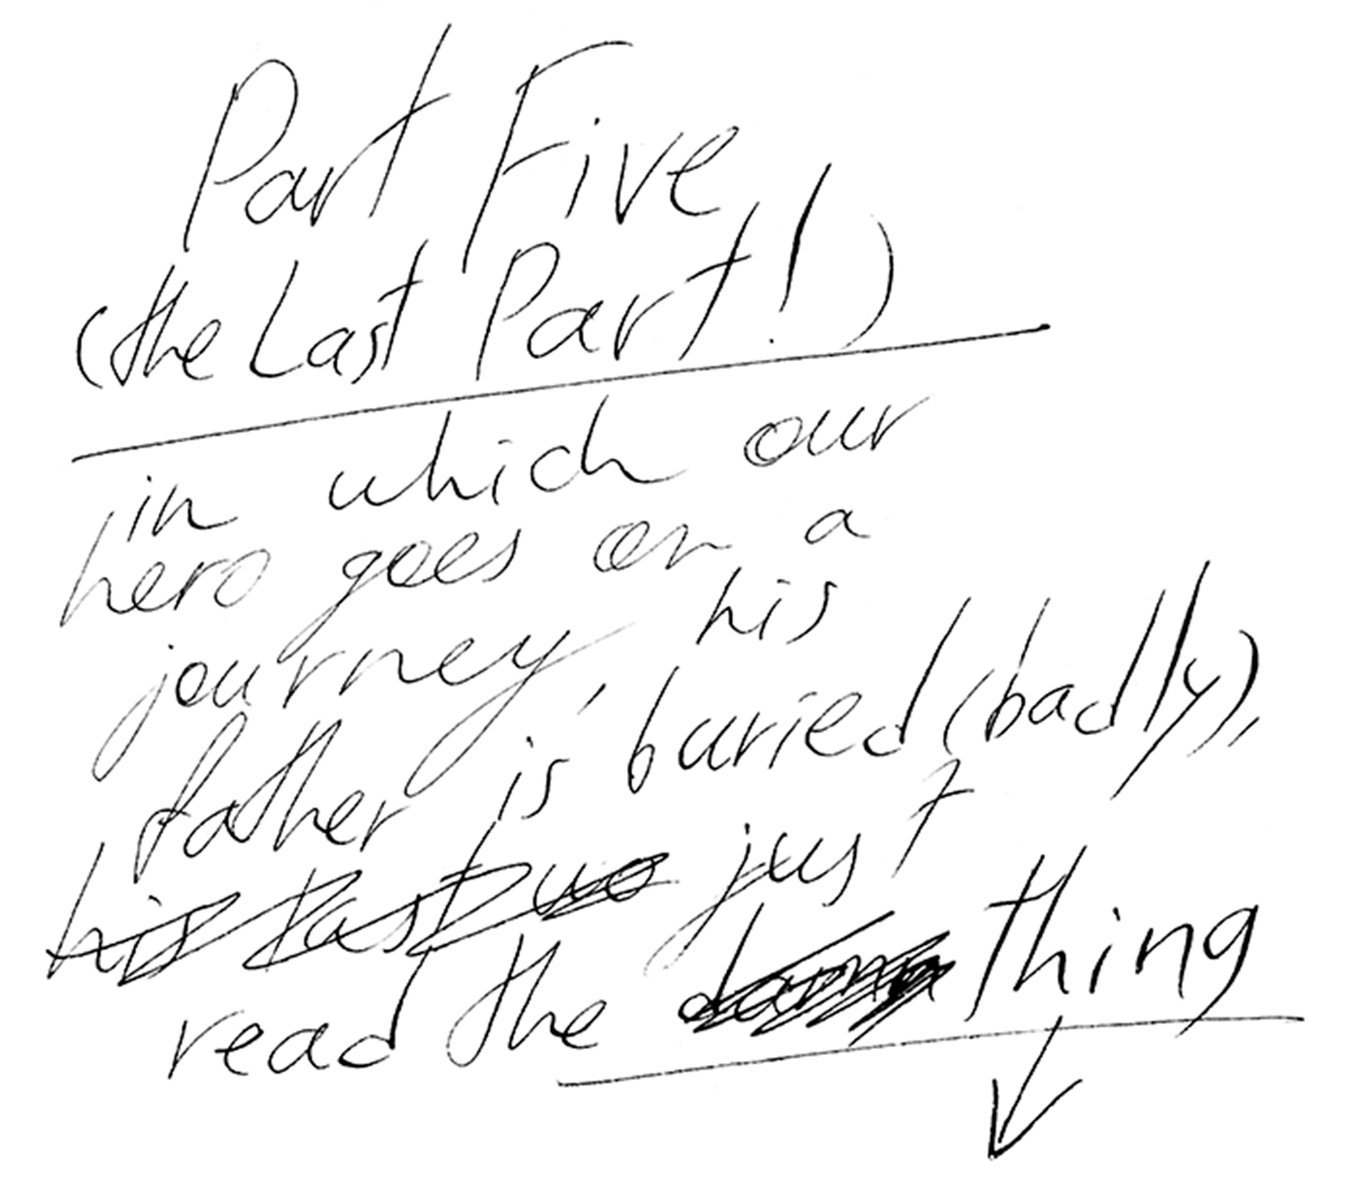 Part Five
(the Last Part!)
in which our
hero goes on a
journey, his
father is buried (badly),
his last wo just
read the damn thing